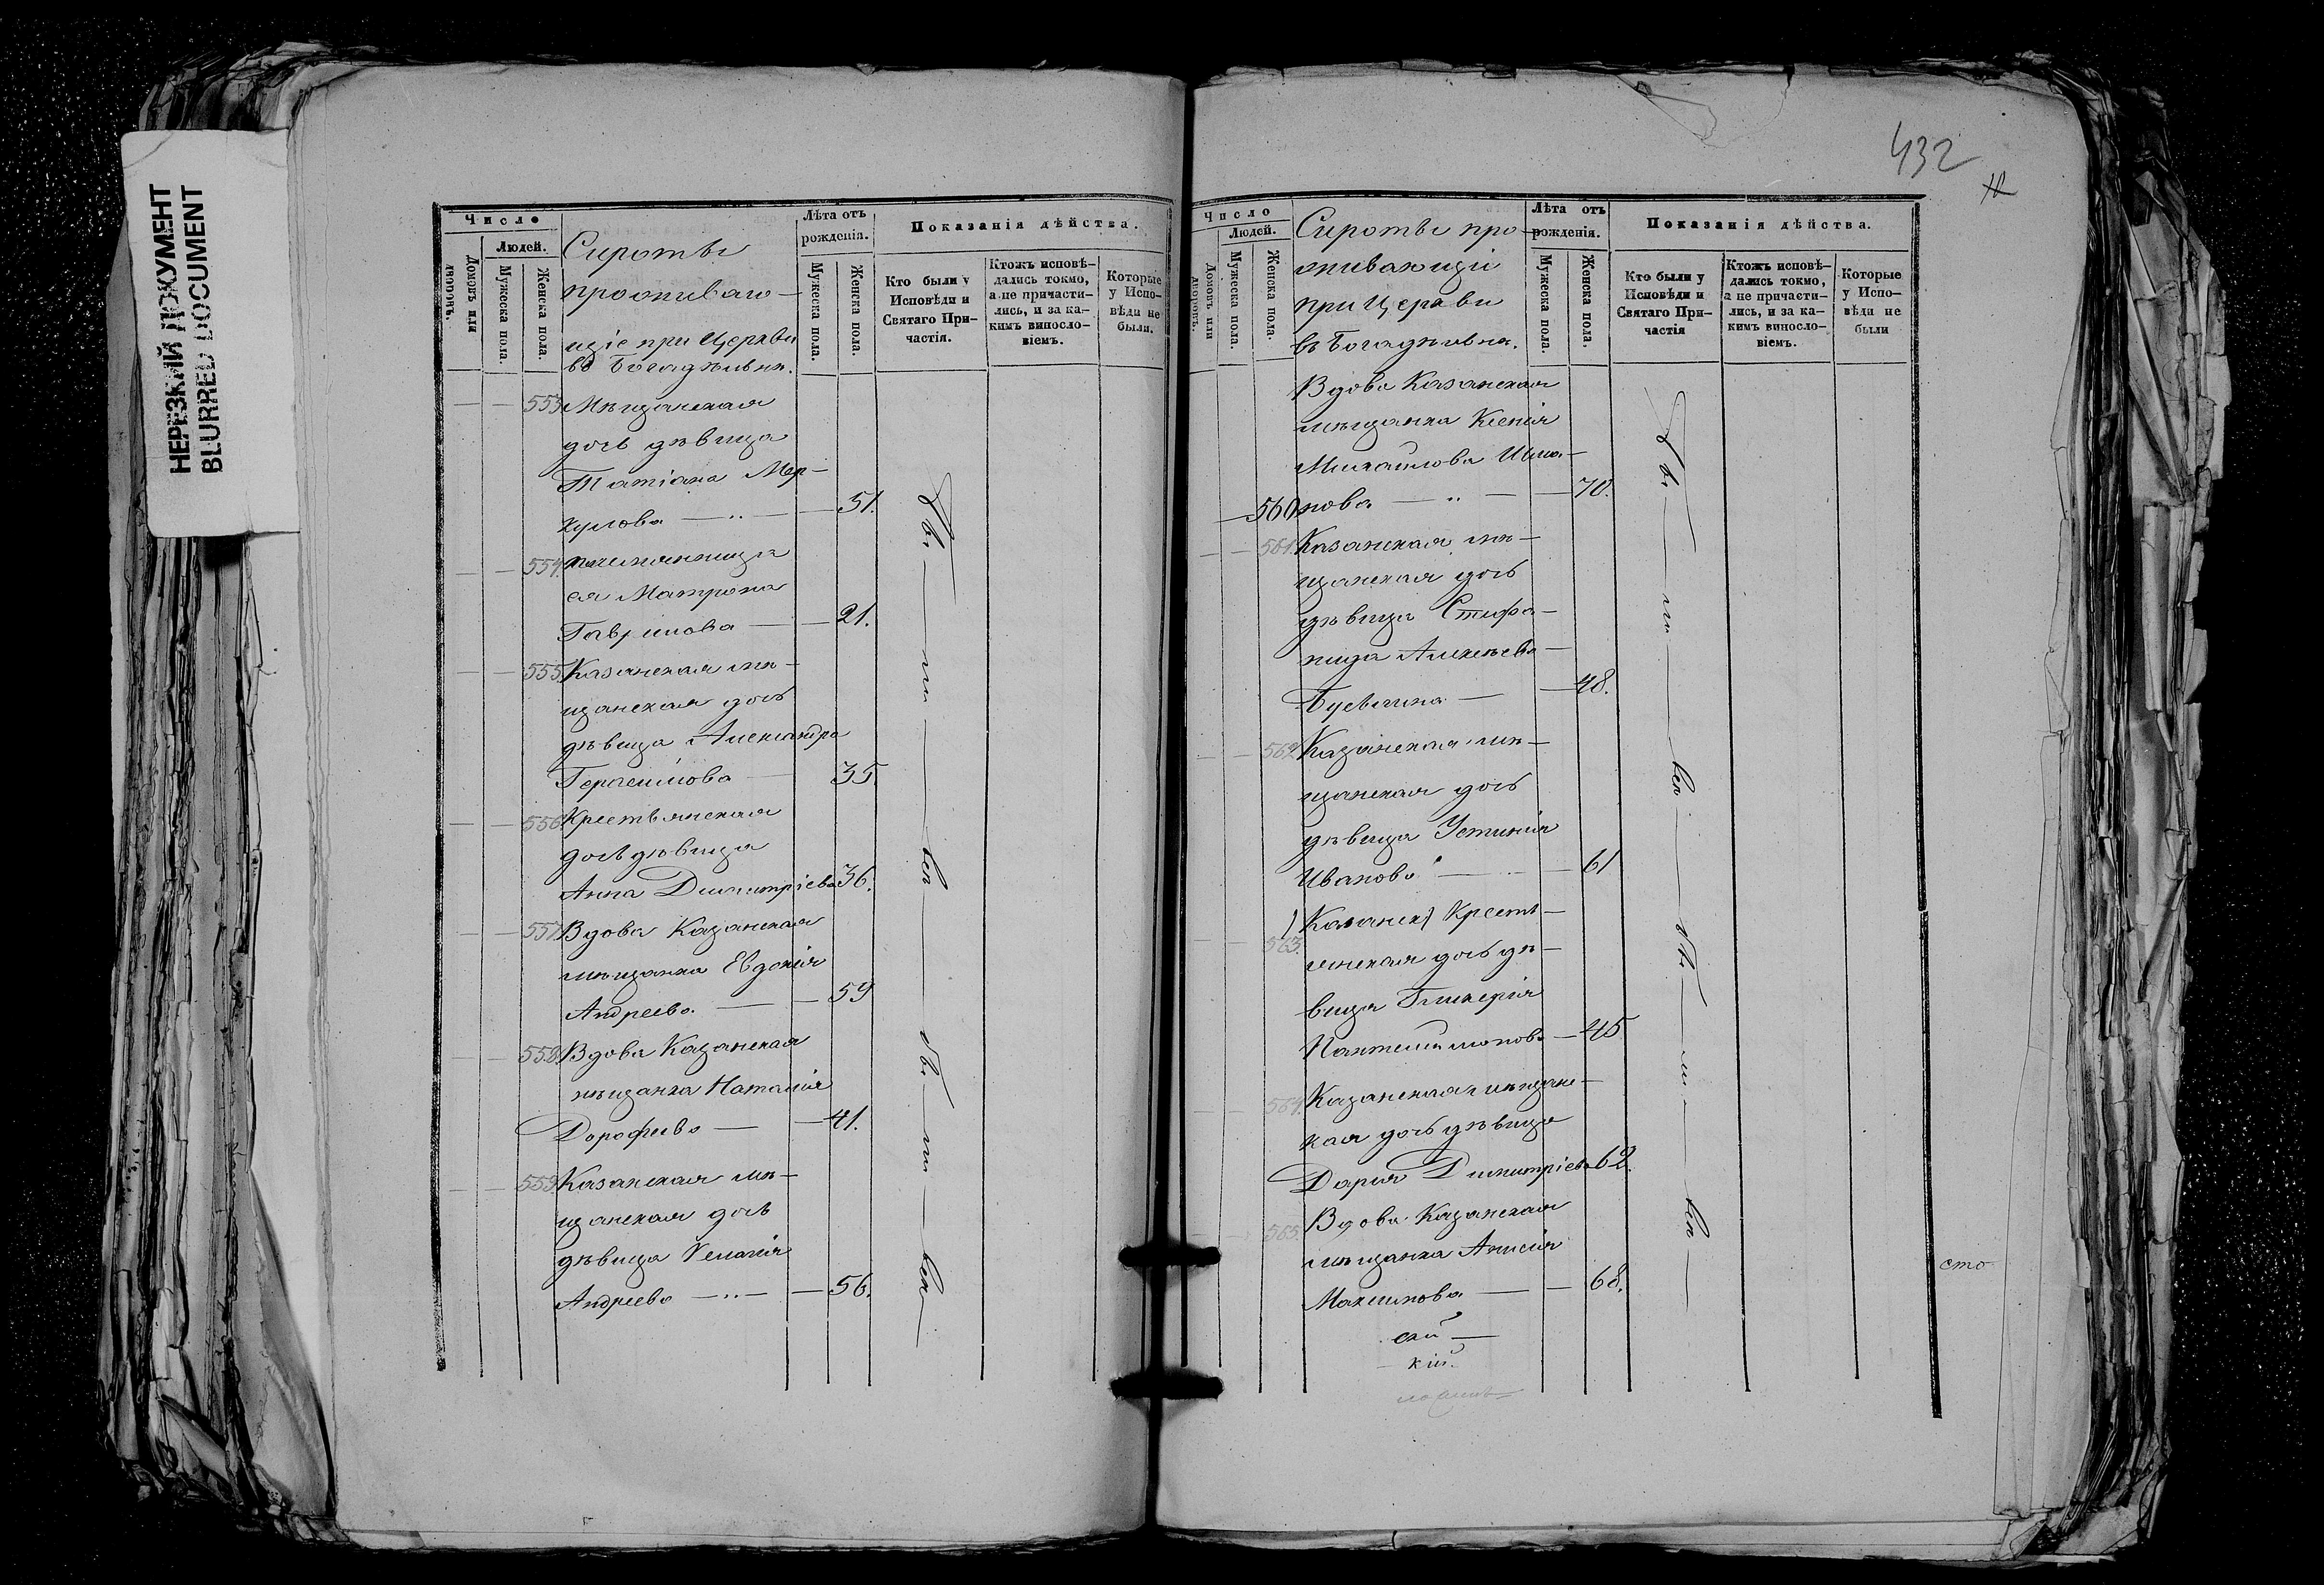 НЕРЕЗКИЙ ДОКУМЕНТ
BLURRED DOCUMENT
Число
Людей.
Домовъ или дворовъ.
Мужеска пола.
Женска пола.
Сироты
проживаю-
щіе при Церкви
въ Богадѣльнѣ.
Лѣта отъ
рожденія.
Мужеска пола.
Женска пола.
Показанія дѣйства.
Кто были у
Исповѣди и
Святаго При-
частія.
Ктожъ исповѣ-
дались токмо,
а не причасти-
лись, и за ка-
кимъ винослo-
віемъ.
Которые
у Испо-
вѣди не
были.
553 Мѣщанская
дочь дѣвица
Татіана Мер-
кулова — 51.
554. племянница
ея Матрона
Гаврилова — 21.
555. Казанская мѣ-
щанская дочь
дѣвица Александра
Герасимова — 35.
556. Крестьянская
дочь дѣвица
Анна Димитріева 36.
557. Вдова Казанская
мѣщанка Евдокія
Андреева — 59
558. Вдова Казанская
мѣщанка Наталія
Дорофеева — 41.
559. Казанская мѣ-
щанская дочь
дѣвица
Андреева — 56.
432
Число
Людей.
Домовъ или дворовъ.
Мужеска пола.
Женска пола.
Сироты про-
живающіи
при Церкви
въ Богадѣльнѣ.
Лѣта отъ
рожденія.
Мужеска пола.
Женска пола.
Показанія дѣйства.
Кто были у
Исповѣди и
Святаго При-
частія
Ктожъ исповѣ-
дались токмо,
а не причасти-
лись, и за ка-
кимъ винослo-
віемъ.
Которые
у Испо-
вѣди не
были
Вдова Казанская
мѣщанка Ксенія
Михайлова
560 нова — 70.
561. Казанская мѣ-
щанская дочь
дѣвица Стефа-
нида Алексѣева
— 48.
562 Казанская мѣ-
щанская дочь
дѣвица Устинія
Иванова — 61
563. Казанск) Кресть-
янская дочь дѣ-
вица Гликерія
Пантелимонова — 45
564. Казанская мѣщанс-
кая дочь дѣвица
Дарія Димитріева 62.
565. Вдова Казанская
мѣщанка Анисія
Максимова — 68.
скій —
кій.
сто